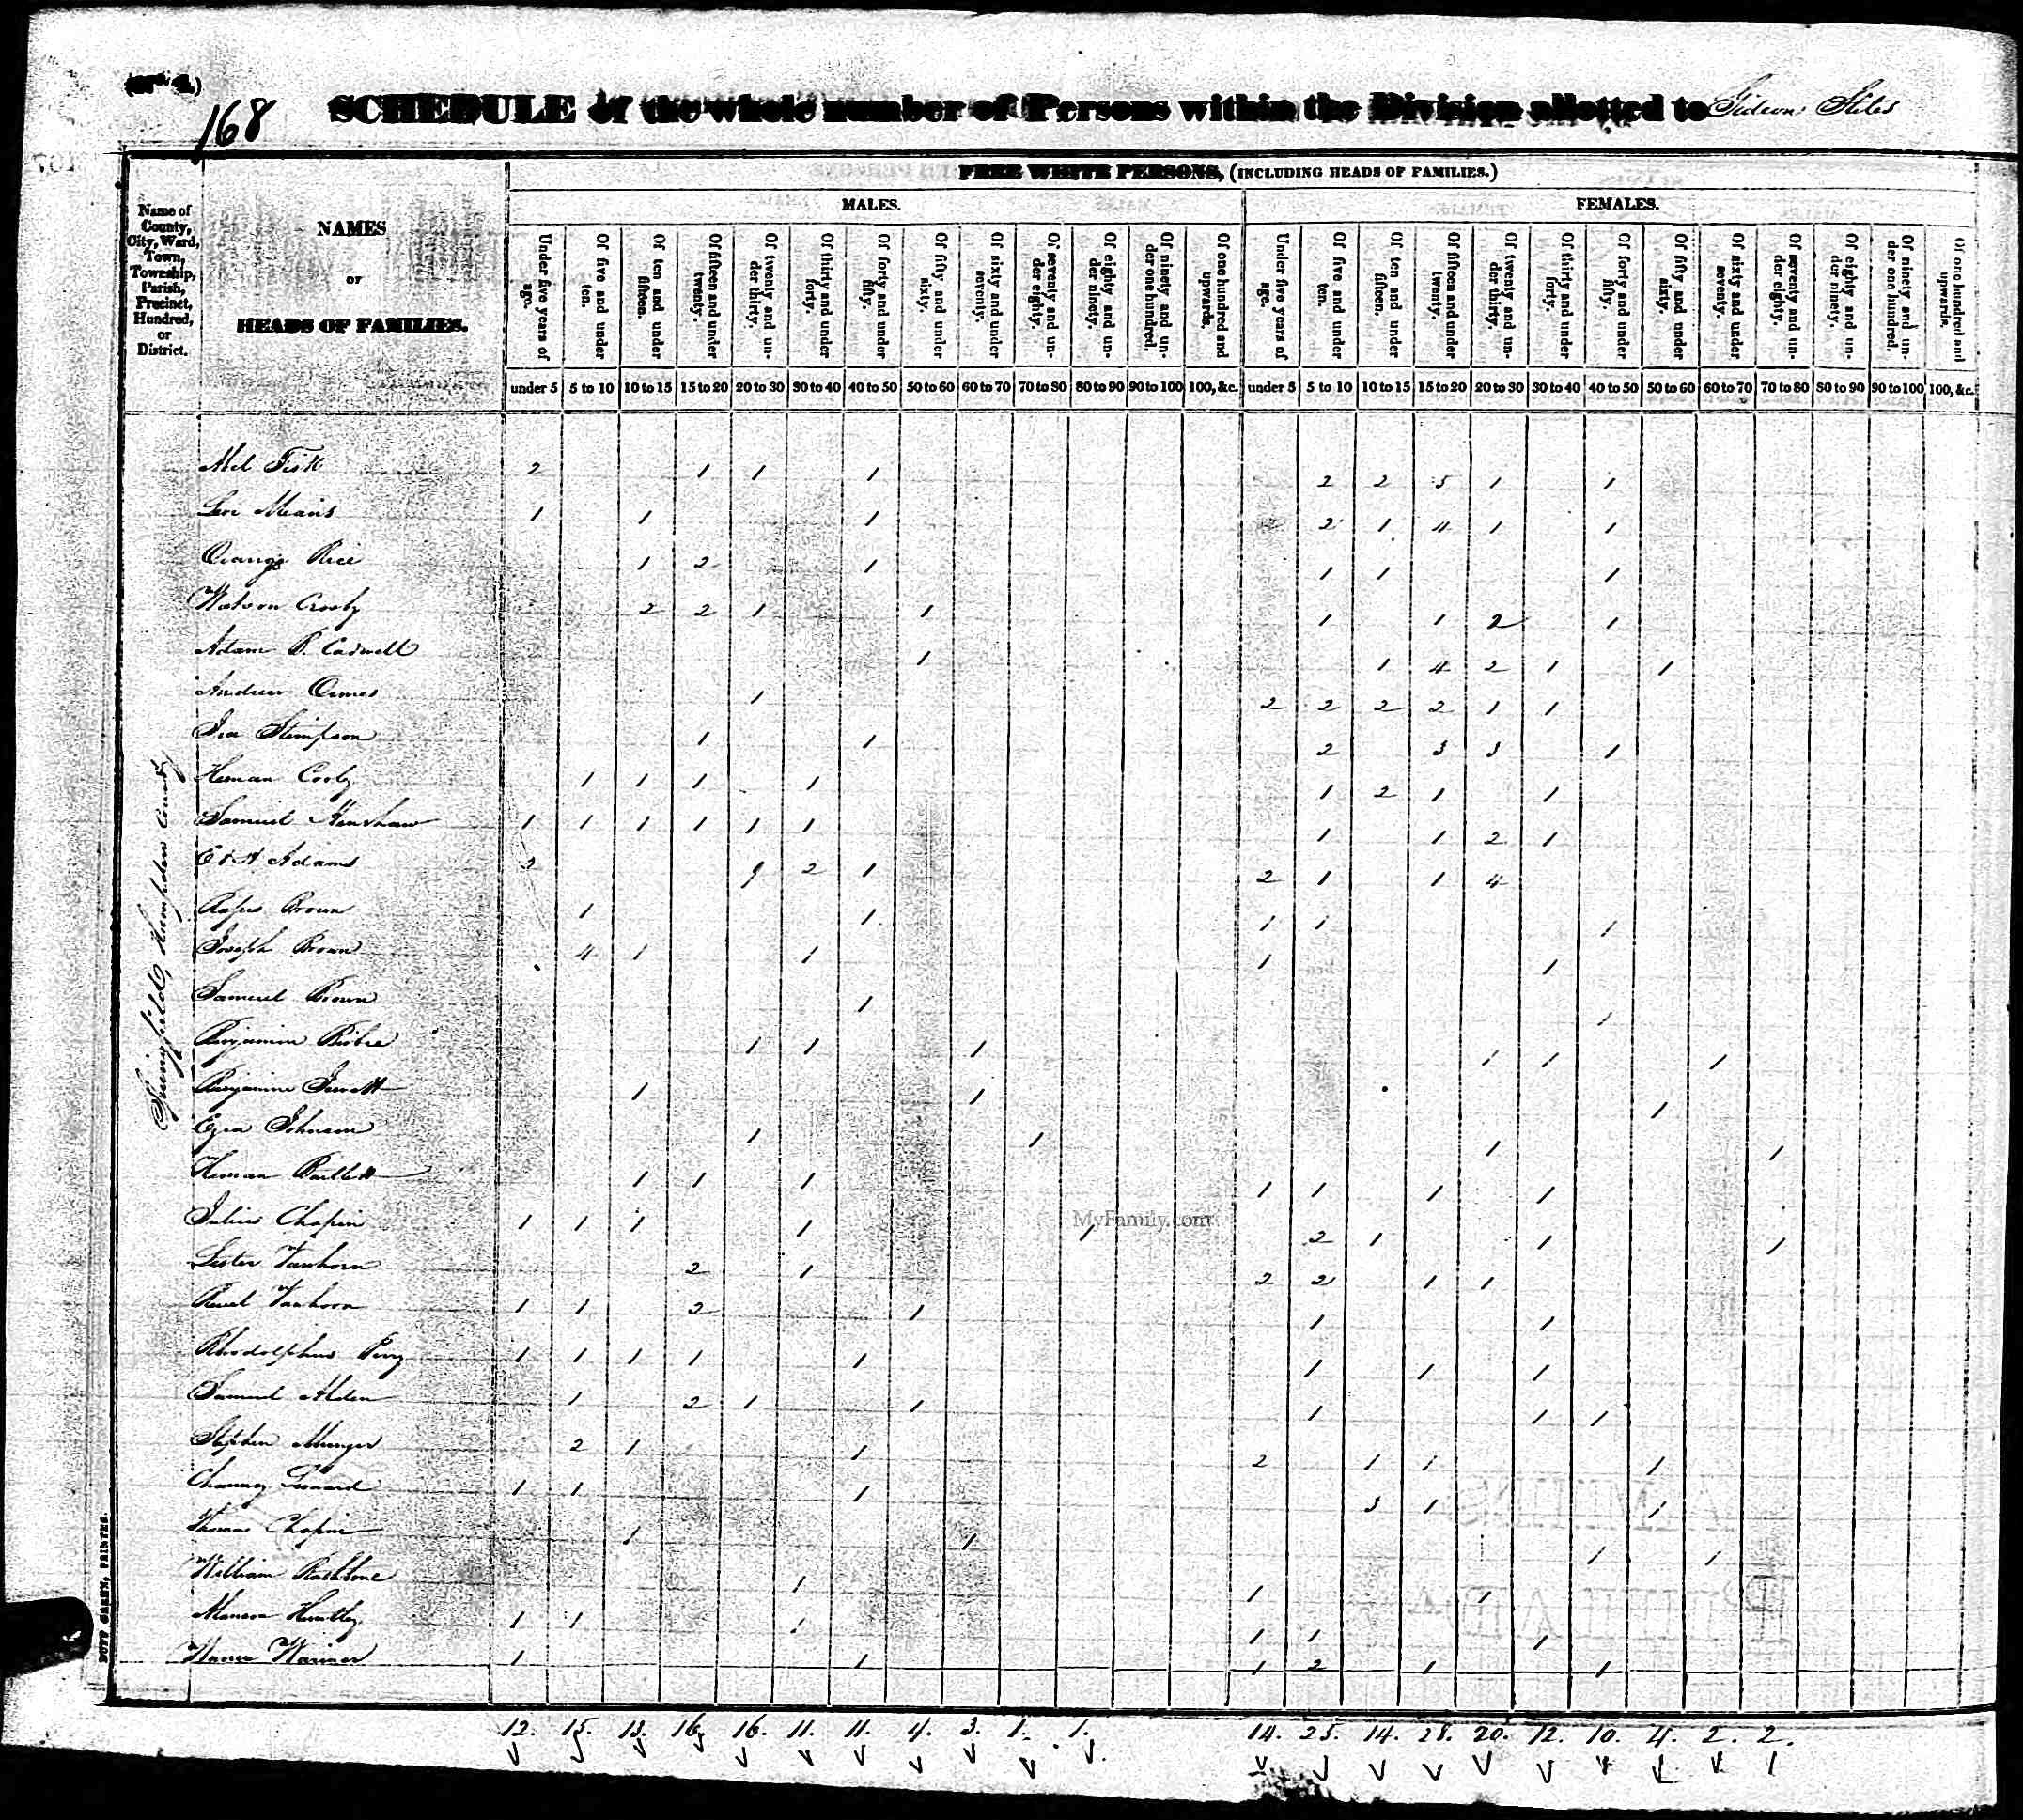 (No 4.)
168
SCHEDULE of the whole number of Persons within the Division allotted to Gideon Stiles
FREE WHITE PERSONS, (INCLUDING HEADS OF FAMILIES.)
Name of County, City, Ward, Town, Township, Parish, Precinct, Hundred, or District.
NAMES OF HEADS OF FAMILIES.
MALES. FEMALES.
Under five years of age. Of five and under ten. Of ten and under fifteen. Of fifteen and under twenty. Of twenty and under thirty. Of thirty and under forty. Of forty and under fifty. Of fifty and under sixty. Of sixty and under seventy. Of seventy and under eighty. Of eighty and under ninety. Of ninety and under one hundred. Of one hundred and upwards. Under five years of age. Of five and under ten. Of ten and under fifteen. Of fifteen and under twenty. Of twenty and under thirty. Of thirty and under forty. Of forty and under fifty. Of fifty and under sixty. Of sixty and under seventy. Of seventy and under eighty. Of eighty and under ninety. Of ninety and under one hundred. Of one hundred and upwards.
under 5 5 to 10 10 to 15 15 to 20 20 to 30 30 to 40 40 to 50 50 to 60 60 to 70 70 to 80 80 to 90 90 to 100 100, &c. under 5 5 to 10 10 to 15 15 to 20 20 to 30 30 to 40 40 to 50 50 to 60 60 to 70 70 to 80 80 to 90 90 to 100 100, &c.
Springfield, Hampden County
Fisk 2 1 1 1 2 2 5 1 1
Means 1 1 1 2 1 4 1 1
Orange Rice 1 2 1 1 1 1
Watson Crosby 2 2 1 1 1 1 2 1
Adam P. Cadwell 1 1 4 2 1 1
Andrew 1 2 2 2 2 1 1
Ira Stimpson 1 1 2 3 3 1
Heman Cooly 1 1 1 1 1 2 1 1
Samuel Henshaw 1 1 1 1 1 1 1 1 2 1
Adams 2 9 2 1 2 1 1 4
Rufus Brown 1 1 1 1 1
Joseph Brown 4 1 1 1 1
Samuel Brown 1 1
Benjamin 1 1 1 1 1 1
Benjamin Jewett 1 1 1
Ezra Johnson 1 1 1 1
Heman Bartlett 1 1 1 1 1 1 1
Julius Chapin 1 1 1 1 1 2 1 1 1
Lester Vanhorn 2 1 2 2 1 1
Vanhorn 1 1 2 1 1 1
Rhodolphus Perry 1 1 1 1 1 1 1 1
Samuel Alden 1 2 1 1 1 1 1
Stephen Munger 2 1 1 2 1 1 1
Chauncy Leonard 1 1 1 3 1 1
Thomas Chapin 1 1 1 1
William Rathbone 1 1 1
Huntley 1 1 1 1 1 1
Warner 1 1 1 2 1 1
12. 15. 13. 16. 16. 11. 11. 4. 3. 1. 1. 14. 25. 14. 28. 20. 12. 10. 4. 2. 2.
DUFF GREEN, PRINTER.
MyFamily.com